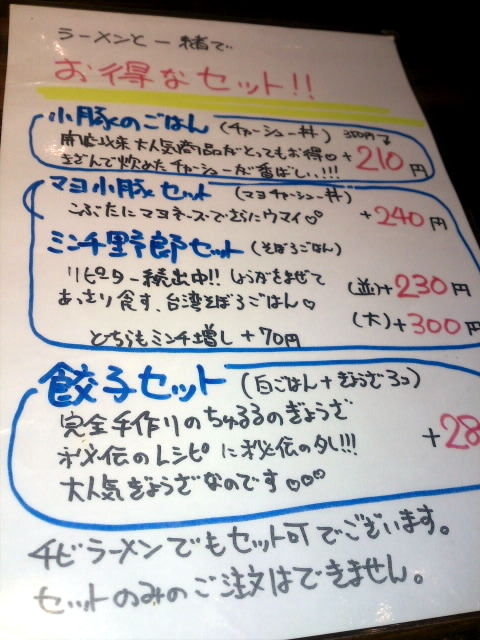 ラーメンと一緒で
お得なセット!!
小豚のごはん (チャーシュー丼) 350円
開店以来大人気商品がとってもお得♡ +210円
きざんで炊めたチャーシューが香ばしい!!!
マヨ小豚セット (マヨチャーシュー丼)
こぶたにマヨネーズでさらにウマイ♡ +240円
ミンチ野郎セット (そぼろごはん)
リピーター続出中!! しょうがをまぜて (並)+230円
あっさり食す、台湾そぼろごはん♡ (大)+300円
どちらもミンチ増し +70円
餃子セット (白ごはん+ぎょうざ3コ)
完全手作りのちゅるるのぎょうざ +28
秘伝のレシピに秘伝のタレ!!!
大人気ぎょうざなのです♡♡♡
チビラーメンでもセット可でございます。
セットのみのご注文はできません。